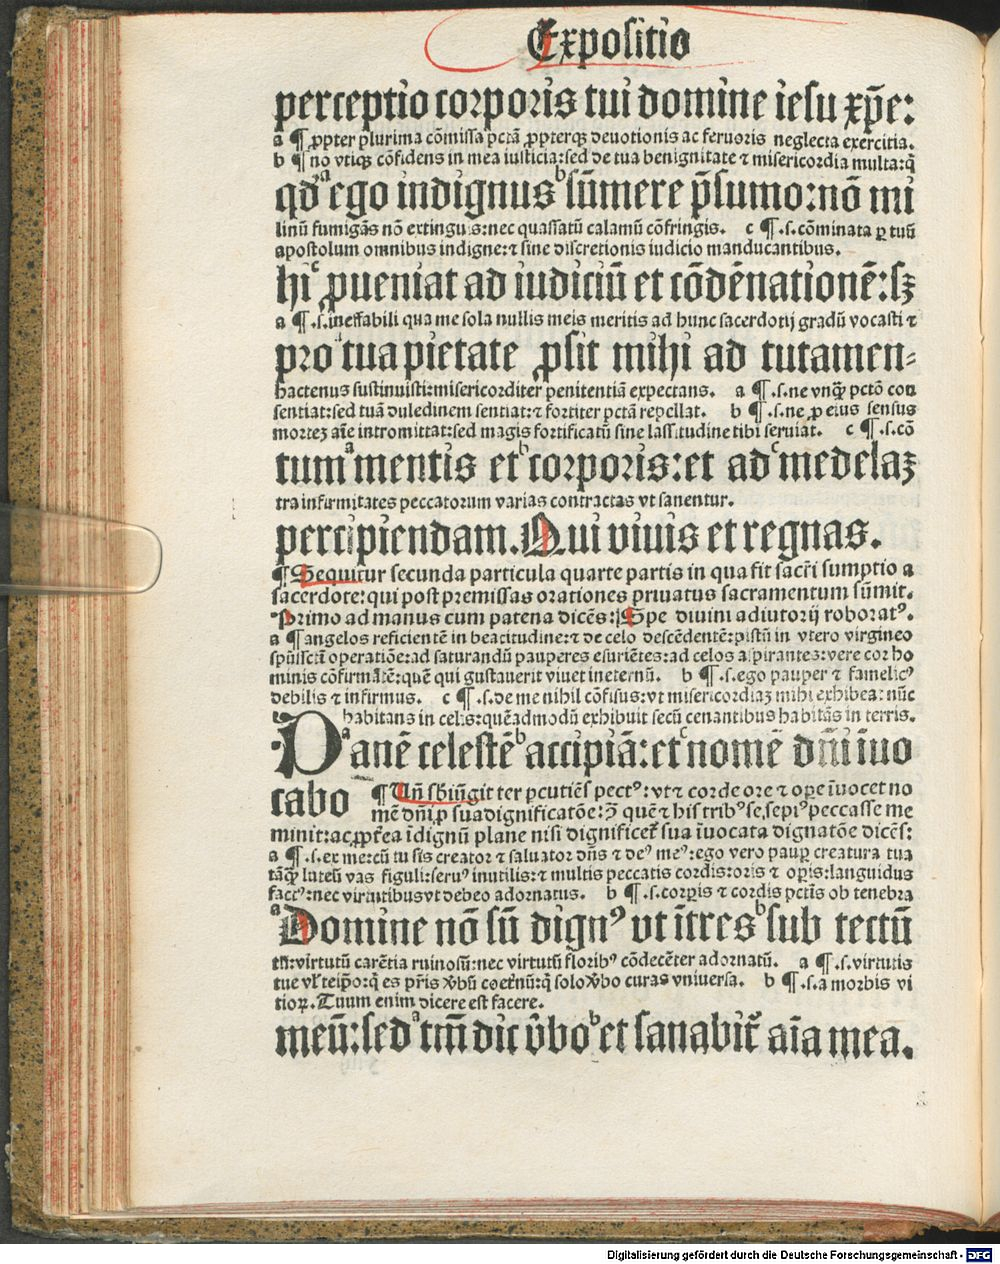 Expositio
perceptio corporis tui domine iesu xp̄e:
a ¶ ꝓpter plurima cōmissa pctā ꝓpterqꝫ deuotionis ac feruoris neglecta exercitia.
b ¶ no vtiqꝫ cōfidens in mea iusticia: sed de tua benignitate ⁊ misericordia multa: q̄
qd̓ a ego indignus b sūmere p̄sumo: nō mi
linū fumigās nō extinguis: nec quassatū calamū cōfringis. c ¶ .s. cōminata ꝑ tuū
apostolum omnibus indigne: ⁊ sine discretionis iudicio manducantibus.
hi c ꝓueniat ad iudiciū et cōdēnationē: sꝫ
a ¶ .s. ineffabili qua me sola nullis meis meritis ad hunc sacerdotij gradū vocasti ⁊
pro a tua pietate ꝓsit mihi ad tutamen⸗
hactenus sustinuisti: misericorditer penitentiā expectans. a ¶ .s. ne vnq̄ pctō con
sentiat: sed tuā dulcedinem sentiat: ⁊ fortiter pctā repellat. b ¶ .s. ne ꝓ eius sensus
mortez aīe intromittat: sed magis fortificatū sine lassitudine tibi seruiat. c ¶ .s. cō
tum a mentis et b corporis: et ad c medelaꝫ
tra infirmitates peccatorum varias contractas vt sanentur.
percipiendam. Qui viuis et regnas.
¶ Sequitur secunda particula quarte partis in qua fit sacri sumptio a
sacerdote: qui post premissas orationes priuatus sacramentum sūmit.
Primo ad manus cum patena dicēs: Spe diuini adiutorij roboratꝰ.
a ¶ angelos reficientē in beatitudine: ⁊ de celo descēdentē: pistū in vtero virgineo
spūsscti operatiōe: ad saturandū pauperes esuriētes: ad celos aspirantes: vere cor ho
minis cōfirmātē: quē qui gustauerit viuet ineternū. b ¶ .s. ego pauper ⁊ famelicꝰ
debilis ⁊ infirmus. c ¶ .s. de me nihil cōfisus: vt misericordiaz mihi exhibeat nūc
habitans in celis: quēadmodū exhibuit secū cenantibus habitās in terris.
P a anē celestē b accipiā: et c nomē dn̄i īuo
cabo ¶ Un̄ sbiūgit ter ꝑcutiēs pectꝰ: vt ⁊ corde ore ⁊ oꝑe īuocet no
mē dn̄i ꝓ sua dignificatōe: ꝙ quē ⁊ his tribꝰ se, sepiꝰ peccasse me
minit: ac ꝓpterea īdignū plane nisi dignificet̄ sua īuocata dignatōe dicēs:
a ¶ .s. ex mercū tu sis creator ⁊ saluator dn̄s ⁊ deꝰ meꝰ: ego vero pauꝑ creatura tua
tāq̄ luteū vas figuli: seruꝰ inutilis: ⁊ multis peccatis cordis: oris ⁊ oꝑis: languidus
factꝰ: nec virtutibus vt debeo adornatus. b ¶ .s. corꝑis ⁊ cordis pctīs ob tenebra
a Domine nō sū dignꝰ vt ītres b sub tectū
tn̄: virtutū carētia ruinosū: nec virtutū floribꝰ cōdecēter adornatū. a ¶ .s. virtutis
tue vl̓ teip̄o: q̄ es pr̄is v̄bū coetn̄ū: q̄ solo v̄bo curas vniuersa. b ¶ .s. a morbis vi
tioꝝ. Tuum enim dicere est facere.
meū: sed a tm̄ dic v̄bo b et sanabit̄ aīa mea.
Digitalisierung gefördert durch die Deutsche Forschungsgemeinschaft - DFG